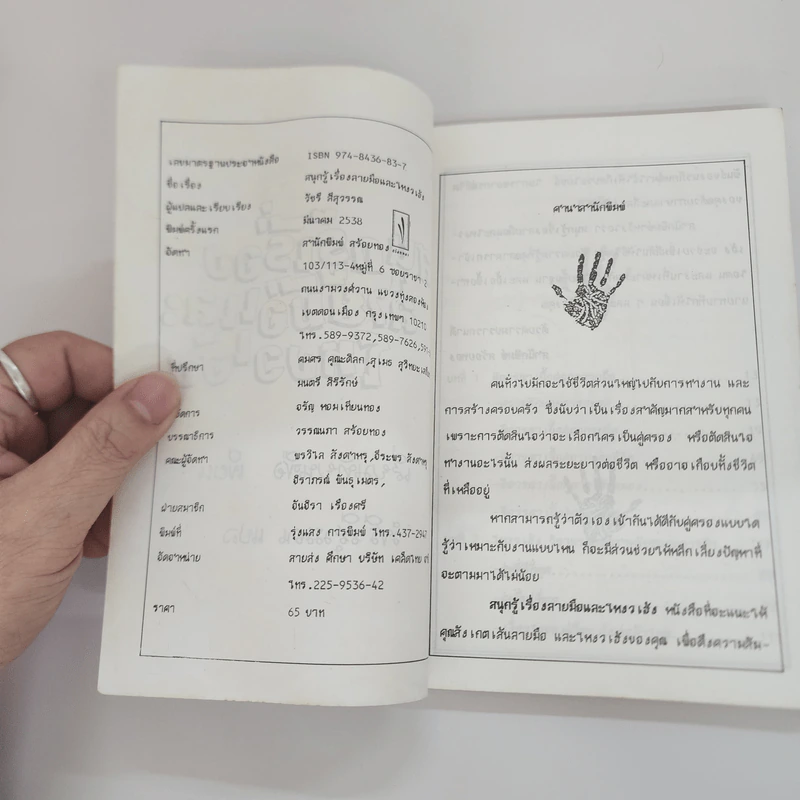 เลขมาตรฐานประจำหนังสือ ISBN 974-8436-83-7
ชื่อเรื่อง สนุกรู้เรื่องลายมือและโหงวเฮ้ง
ผู้แปลและเรียบเรียง วัชรี สีสุวรรณ
พิมพ์ครั้งแรก มีนาคม 2538
จัดทำ สำนักพิมพ์ สร้อยทอง
103/113-4หมู่ที่ 6 ซอยราชา
ถนนงามวงศ์วาน แขวงทุ่งสองห้อง
เขตดอนเมือง กรุงเทพฯ 10210
โทร.589-9372,589-7626,
ที่ปรึกษา คมศร คุณะดิลก,สุเมธ
มนตรี สิริรักษ์
จัดการ อรัญ หอมเทียนทอง
บรรณาธิการ วรรณนภา สร้อยทอง
คณะผู้จัดทำ พรวิไล
จิราภรณ์ พันธุเมตร,
ฝ่ายสมาชิก จันจิรา เรืองศรี
พิมพ์ที่ รุ่งแสง การพิมพ์ โทร.437-2947
จัดจำหน่าย สายส่ง ศึกษา บริษัท เคล็ดไทย
โทร.225-9536-42
ราคา 65 บาท
คำนำสำนักพิมพ์
คนทั่วไปมักจะใช้ชีวิตส่วนใหญ่ไปกับการทำงาน และ
การสร้างครอบครัว ซึ่งนับว่าเป็นเรื่องสำคัญมากสำหรับทุกคน
เพราะการตัดสินใจว่าจะเลือกใครเป็นคู่ครอง หรือตัดสินใจ
ทำงานอะไรนั้น ส่งผลระยะยาวต่อชีวิต หรืออาจเกือบทั้งชีวิต
ที่เหลืออยู่
หากสามารถรู้ว่าตัวเองเข้ากันได้ดีกับคู่ครองแบบใด
รู้ว่าเหมาะกับงานแบบไหน ก็จะมีส่วนช่วยให้หลีกเลี่ยงปัญหาที่
จะตามมาได้ไม่น้อย
สนุกรู้เรื่องลายมือและโหงวเฮ้ง หนังสือที่จะแนะให้
คุณสังเกตเส้นลายมือ และโหงวเฮ้งของคุณ เพื่อดึงความสัม-